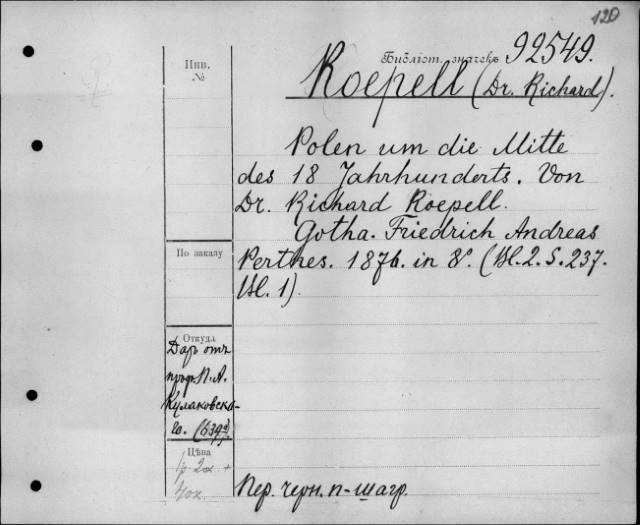 120
Библіот. значекъ 92549.
Инв.
№
Roepell (Dr. Richard).
Polen um die Mitte
des 18 Jahrhunderts. Von
Dr. Richard Roepell.
Gotha. Friedrich Andreas
По заказу
Perthes. 1876. in 8º. (Bl. 2. S. 237.
Bl. 1).
Откуда
Даръ отъ
проф. П. А.
Кулаковска-
го.
Цѣна
Пер. черн. п-шагр.